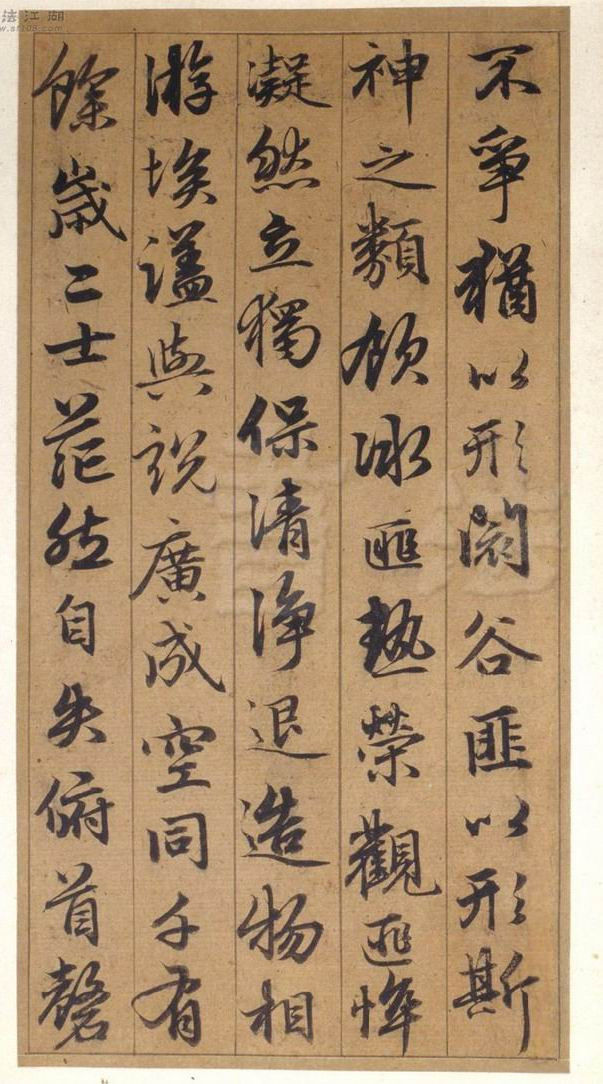 法江湖
www.sf108.com
不爭猶以形谷匪以形斯
神之類飲冰匪熱榮觀匪
凝然立獨保清淨退造物相
游埃與說廣成空同千有
餘歲二士茫然自失俯首磬